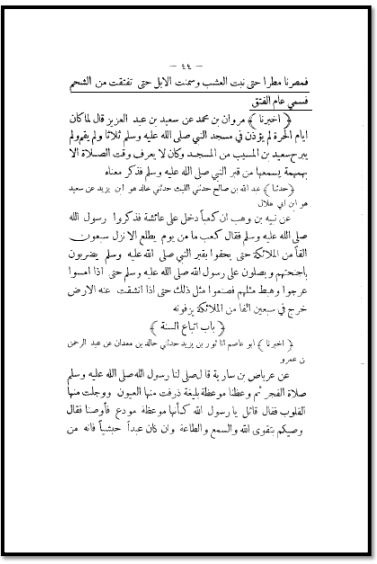 — ٤٤ —
فمطرنا مطرا حتى نبت العشب وسمنت الابل حتى تفتقت من الشحم
فسمي عام الفتق
﴿ اخبرنا ﴾ مروان بن محمد عن سعيد بن عبد العزيز قال لما كان
ايام الحرة لم يؤذن في مسجد النبي صلى الله عليه وسلم ثلاثا ولم يقم ولم
يبرح سعيد بن المسيب من المسجد وكان لا يعرف وقت الصلاة الا
بهمهمة يسمعها من قبر النبي صلى الله عليه وسلم فذكر معناه
﴿ حدثنا ﴾ عبد الله بن صالح حدثني الليث حدثني خالد هو ابن يزيد عن سعيد
هو ابن ابي هلال
عن نبيه بن وهب ان كعباً دخل على عائشة فذكروا رسول الله
صلى الله عليه وسلم فقال كعب ما من يوم يطلع الا نزل سبعون
الفا من الملائكة حتى يحفوا بقبر النبي صلى الله عليه وسلم يضربون
باجنحتهم ويصلون على رسول الله صلى الله عليه وسلم حتى اذا امسوا
عرجوا وهبط مثلهم فصنعوا مثل ذلك حتى اذا انشقت عنه الارض
خرج في سبعين الفا من الملائكة يزفونه
﴿ باب اتباع السنة ﴾
﴿ اخبرنا ﴾ ابو عاصم انا ثور بن يزيد حدثني خالد بن معدان عن عبد الرحمن
بن عمرو
عن عرباض بن سارية قال صلى لنا رسول الله صلى الله عليه وسلم
صلاة الفجر ثم وعظنا موعظة بليغة ذرفت منها العيون ووجلت منها
القلوب فقال قائل يا رسول الله كأنها موعظة مودع فأوصنا فقال
اوصيكم بتقوى الله والسمع والطاعة وان كان عبداً حبشياً فانه من